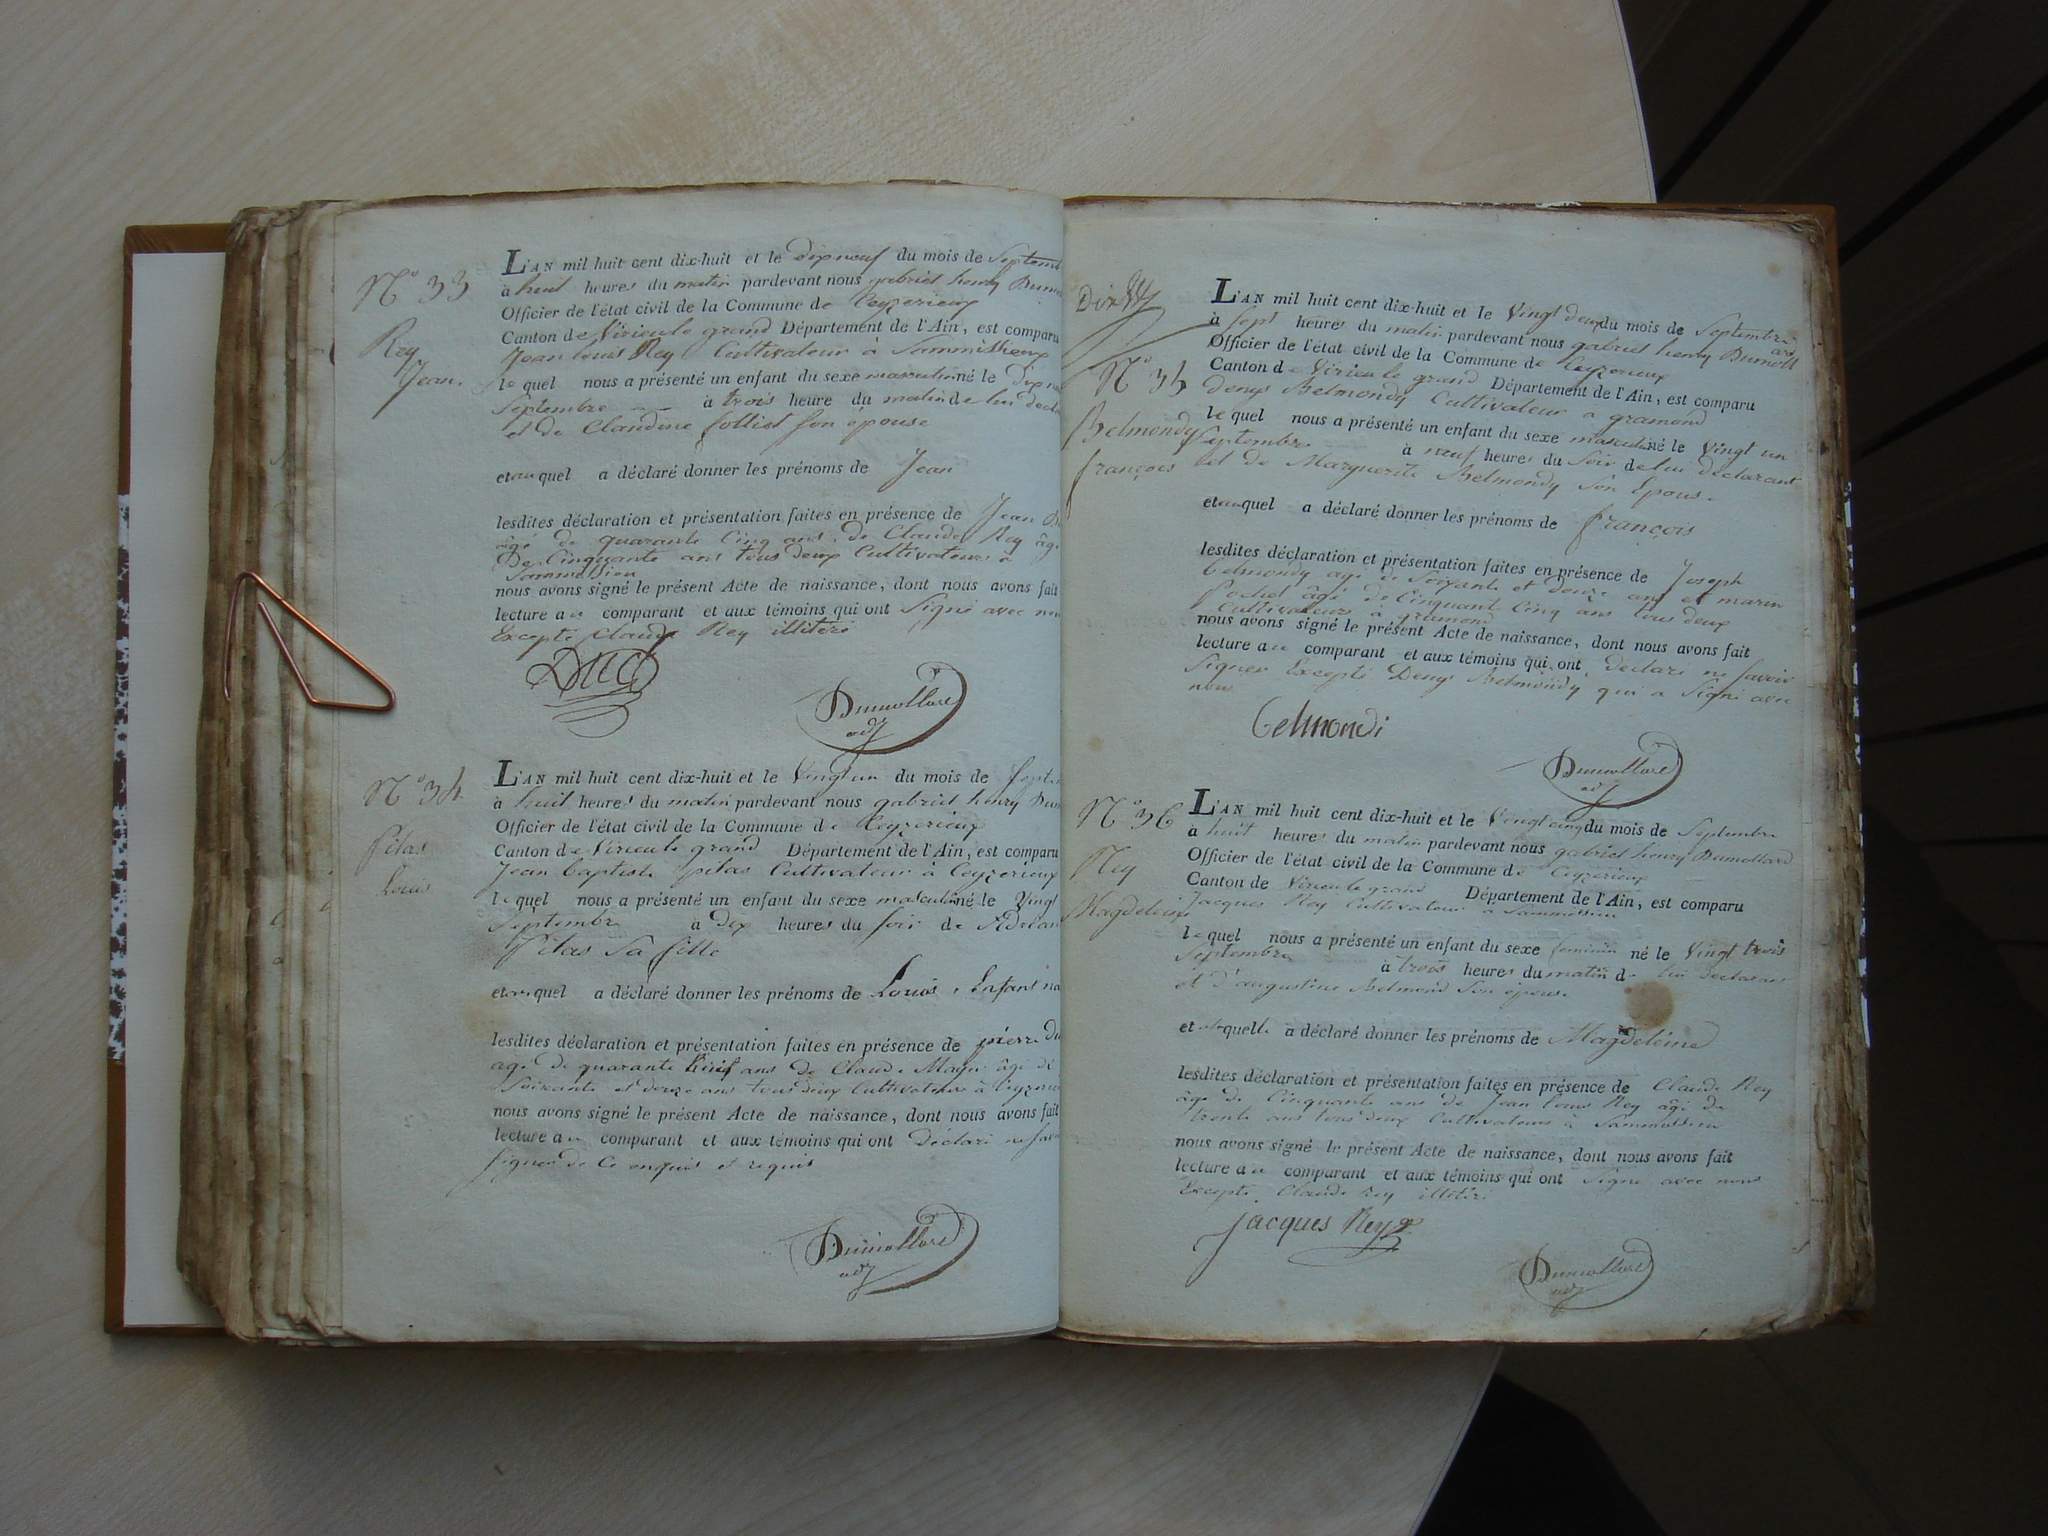 N.° 33
Rey
Jean.
L'AN mil huit cent dix-huit et le dixneuf du mois de Septemb
à huit heures du matin pardevant nous gabriel henry Dumo
Officier de l'état civil de la Commune de Ceyzerieux
Canton de Virieu le grand Département de l'Ain, est comparu
Jean louis Rey Cultivateur à
le quel nous a présenté un enfant du sexe masculin né le Dix
Septembre à trois heure du matin de lui decla
et de Claudine son épouse
et auquel a déclaré donner les prénoms de Jean
lesdites déclaration et présentation faites en présence de Jean
âgé de quarante Cinq ans, de Claude Rey âgé
De Cinquante ans tous deux Cultivateurs à
Sammession
nous avons signé le présent Acte de naissance, dont nous avons fait
lecture au comparant et aux témoins qui ont Signé avec nou
Excepté Claude Rey illitéré
Duc
Dumollard
adj
N.° 34
Pilas
Louis
L'AN mil huit cent dix-huit et le Vingt un du mois de Septe
à huit heures du matin pardevant nous gabriel henry Dum
Officier de l'état civil de la Commune de Ceyzerieux
Canton de Virieu le grand Département de l'Ain, est comparu
Jean baptiste pilas Cultivateur à Ceyzerieux
le quel nous a présenté un enfant du sexe masculin né le Vingt
Septembre à dix heures du soir de
Pilas Sa fille
et auquel a déclaré donner les prénoms de Louis, Enfant na
lesdites déclaration et présentation faites en présence de pierre du
agé de quarante ans de Claude âgé de
Soixante et douze ans tous deux Cultivateurs à Ceyzerie
nous avons signé le présent Acte de naissance, dont nous avons fait
lecture au comparant et aux témoins qui ont Déclaré ne sav
signer de Ce enquis et requis
Dumollard
adj
Dix
N.° 35
Belmondy
françois
L'AN mil huit cent dix-huit et le Vingt deux du mois de Septembre
à sept heures du matin pardevant nous gabriel henry Dumollard
Officier de l'état civil de la Commune de Ceyzerieux
Canton de Virieu le grand Département de l'Ain, est comparu
denys Belmondy Cultivateur a gramond
le quel nous a présenté un enfant du sexe masculin né le Vingt un
Septembre à neuf heures du Soir de lui déclarant
et de Marguerite Belmondy Son Epouse
et auquel a déclaré donner les prénoms de françois
lesdites déclaration et présentation faites en présence de Joseph
belmondy agé de Soixante et douze ans et marin
pochet âgé de Cinquante Cinq ans tous deux
Cultivateurs à gramond
nous avons signé le présent Acte de naissance, dont nous avons fait
lecture au comparant et aux témoins qui ont déclaré ne savoir
Signer Excepté Denys Belmondy qui a Signé avec
nous
belmondi
Dumollard
adj
N.° 36
Rey
Magdeleine
L'AN mil huit cent dix-huit et le Vingt cinq du mois de Septembre
à huit heures du matin pardevant nous gabriel henry Dumollard
Officier de l'état civil de la Commune de Ceyzerieux
Canton de Virieu le grand Département de l'Ain, est comparu
Jacques Rey Cultivateur a Sammession
le quel nous a présenté un enfant du sexe feminin né le Vingt trois
Septembre à trois heures du matin de lui déclarant
et d'augustine Belmond Son épouse
et à laquelle a déclaré donner les prénoms de Magdeleine
lesdites déclaration et présentation faites en présence de Claude Rey
âgé de Cinquante ans de Jean louis Rey âgé de
trente ans tous deux Cultivateurs à Sammession
nous avons signé le présent Acte de naissance, dont nous avons fait
lecture au comparant et aux témoins qui ont Signé avec nous
Excepté Claude rey illitéré
jacques Rey
Dumollard
adj